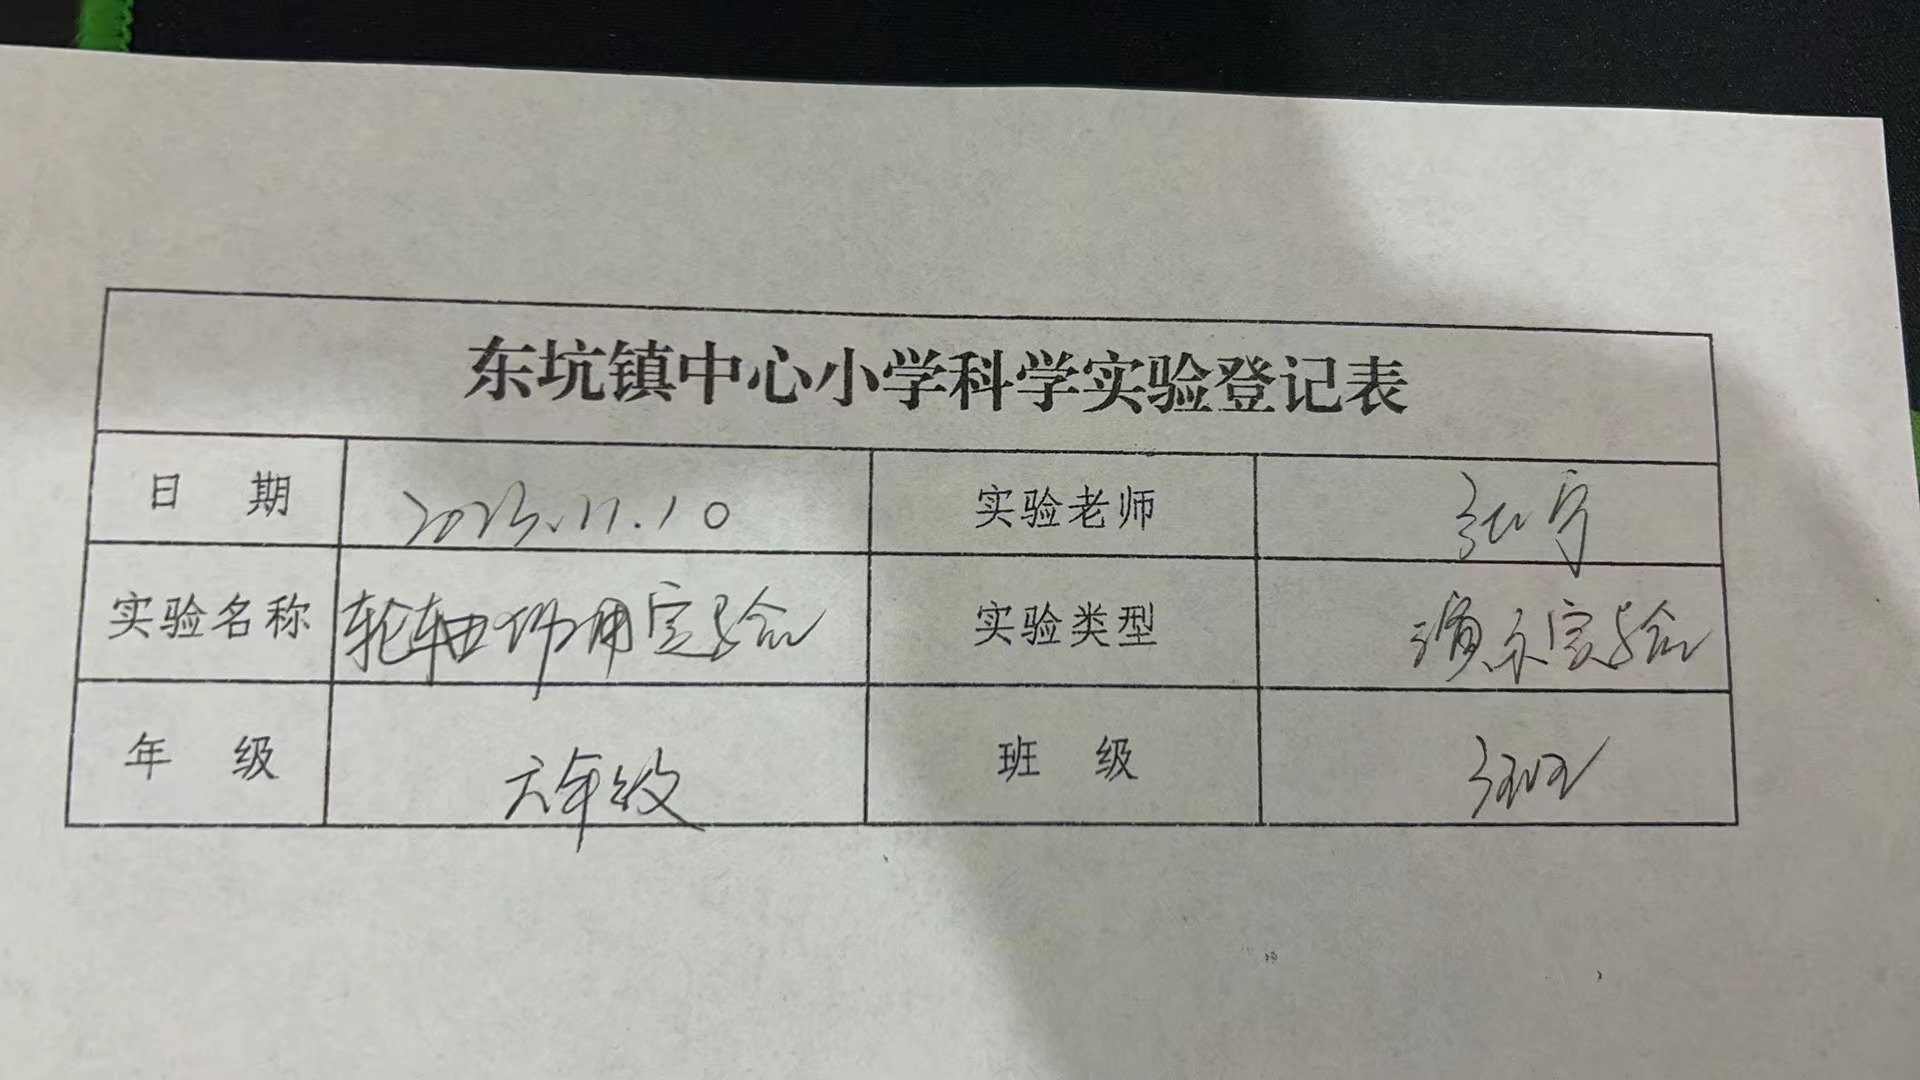 东坑镇中心小学科学实验登记表
日 期 2023.11.10 实验老师 张宁
实验名称 轮轴作用实验 实验类型 演示实验
年 级 六年级 班 级